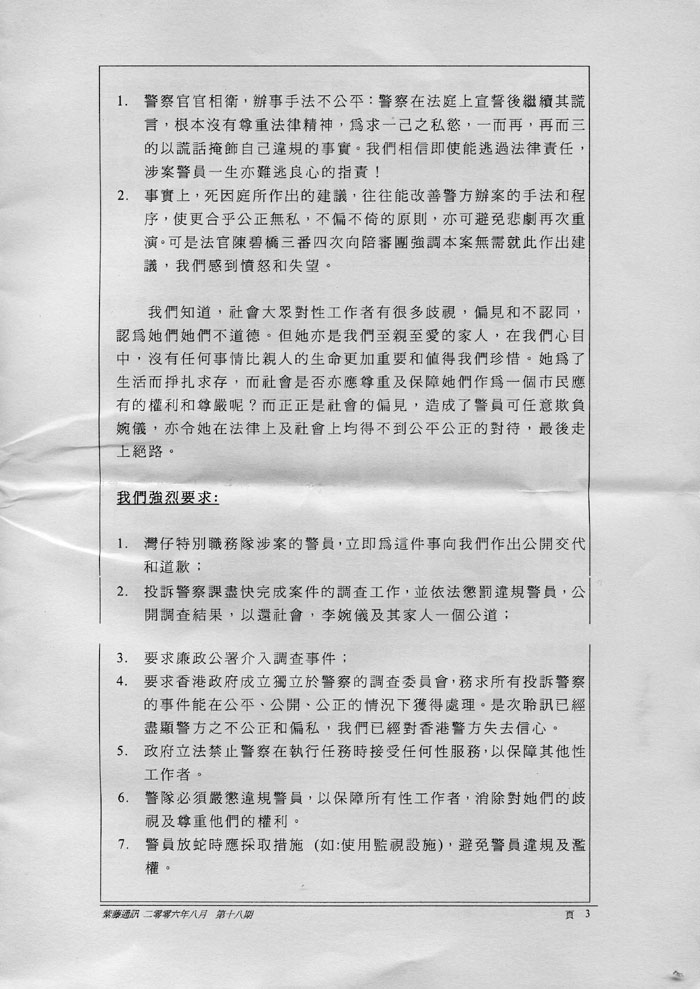 1. 警察官官相衛，辦事手法不公平：警察在法庭上宣誓後繼續其謊
言，根本沒有尊重法律精神，為求一己之私慾，一而再，再而三
的以謊話掩飾自己違規的事實。我們相信即使能逃過法律責任，
涉案警員一生亦難逃良心的指責！
2. 事實上，死因庭所作出的建議，往往能改善警方辦案的手法和程
序，使更合乎公正無私，不偏不倚的原則，亦可避免悲劇再次重
演。可是法官陳碧橋三番四次向陪審團強調本案無需就此作出建
議，我們感到憤怒和失望。
我們知道，社會大眾對性工作者有很多歧視，偏見和不認同，
認為她們她們不道德。但她亦是我們至親至愛的家人，在我們心目
中，沒有任何事情比親人的生命更加重要和值得我們珍惜。她為了
生活而掙扎求存，而社會是否亦應尊重及保障她們作為一個市民應
有的權利和尊嚴呢？而正正是社會的偏見，造成了警員可任意欺負
婉儀，亦令她在法律上及社會上均得不到公平公正的對待，最後走
上絕路。
我們強烈要求:
1. 灣仔特別職務隊涉案的警員，立即為這件事向我們作出公開交代
和道歉；
2. 投訴警察課盡快完成案件的調查工作，並依法懲罰違規警員，公
開調查結果，以還社會，李婉儀及其家人一個公道；
3. 要求廉政公署介入調查事件；
4. 要求香港政府成立獨立於警察的調查委員會，務求所有投訴警察
的事件能在公平、公開、公正的情況下獲得處理。是次聆訊已經
盡顯警方之不公正和偏私，我們已經對香港警方失去信心。
5. 政府立法禁止警察在執行任務時接受任何性服務，以保障其他性
工作者。
6. 警隊必須嚴懲違規警員，以保障所有性工作者，消除對她們的歧
視及尊重他們的權利。
7. 警員放蛇時應採取措施 (如:使用監視設施)，避免警員違規及濫
權。
紫藤通訊 二零零六年八月 第十八期 頁 3